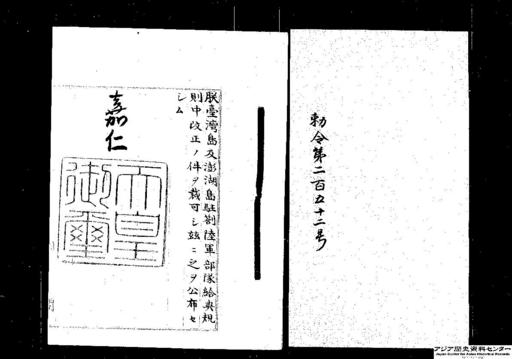 勅令第二百五十二号
朕臺灣島及澎湖島駐劄陸軍部隊給與規
則中改正ノ件ヲ裁可シ玆ニ之ヲ公布セ
シム
嘉仁
天皇
御璽
アジア歴史資料センター
Japan Center for Asian Historical Records